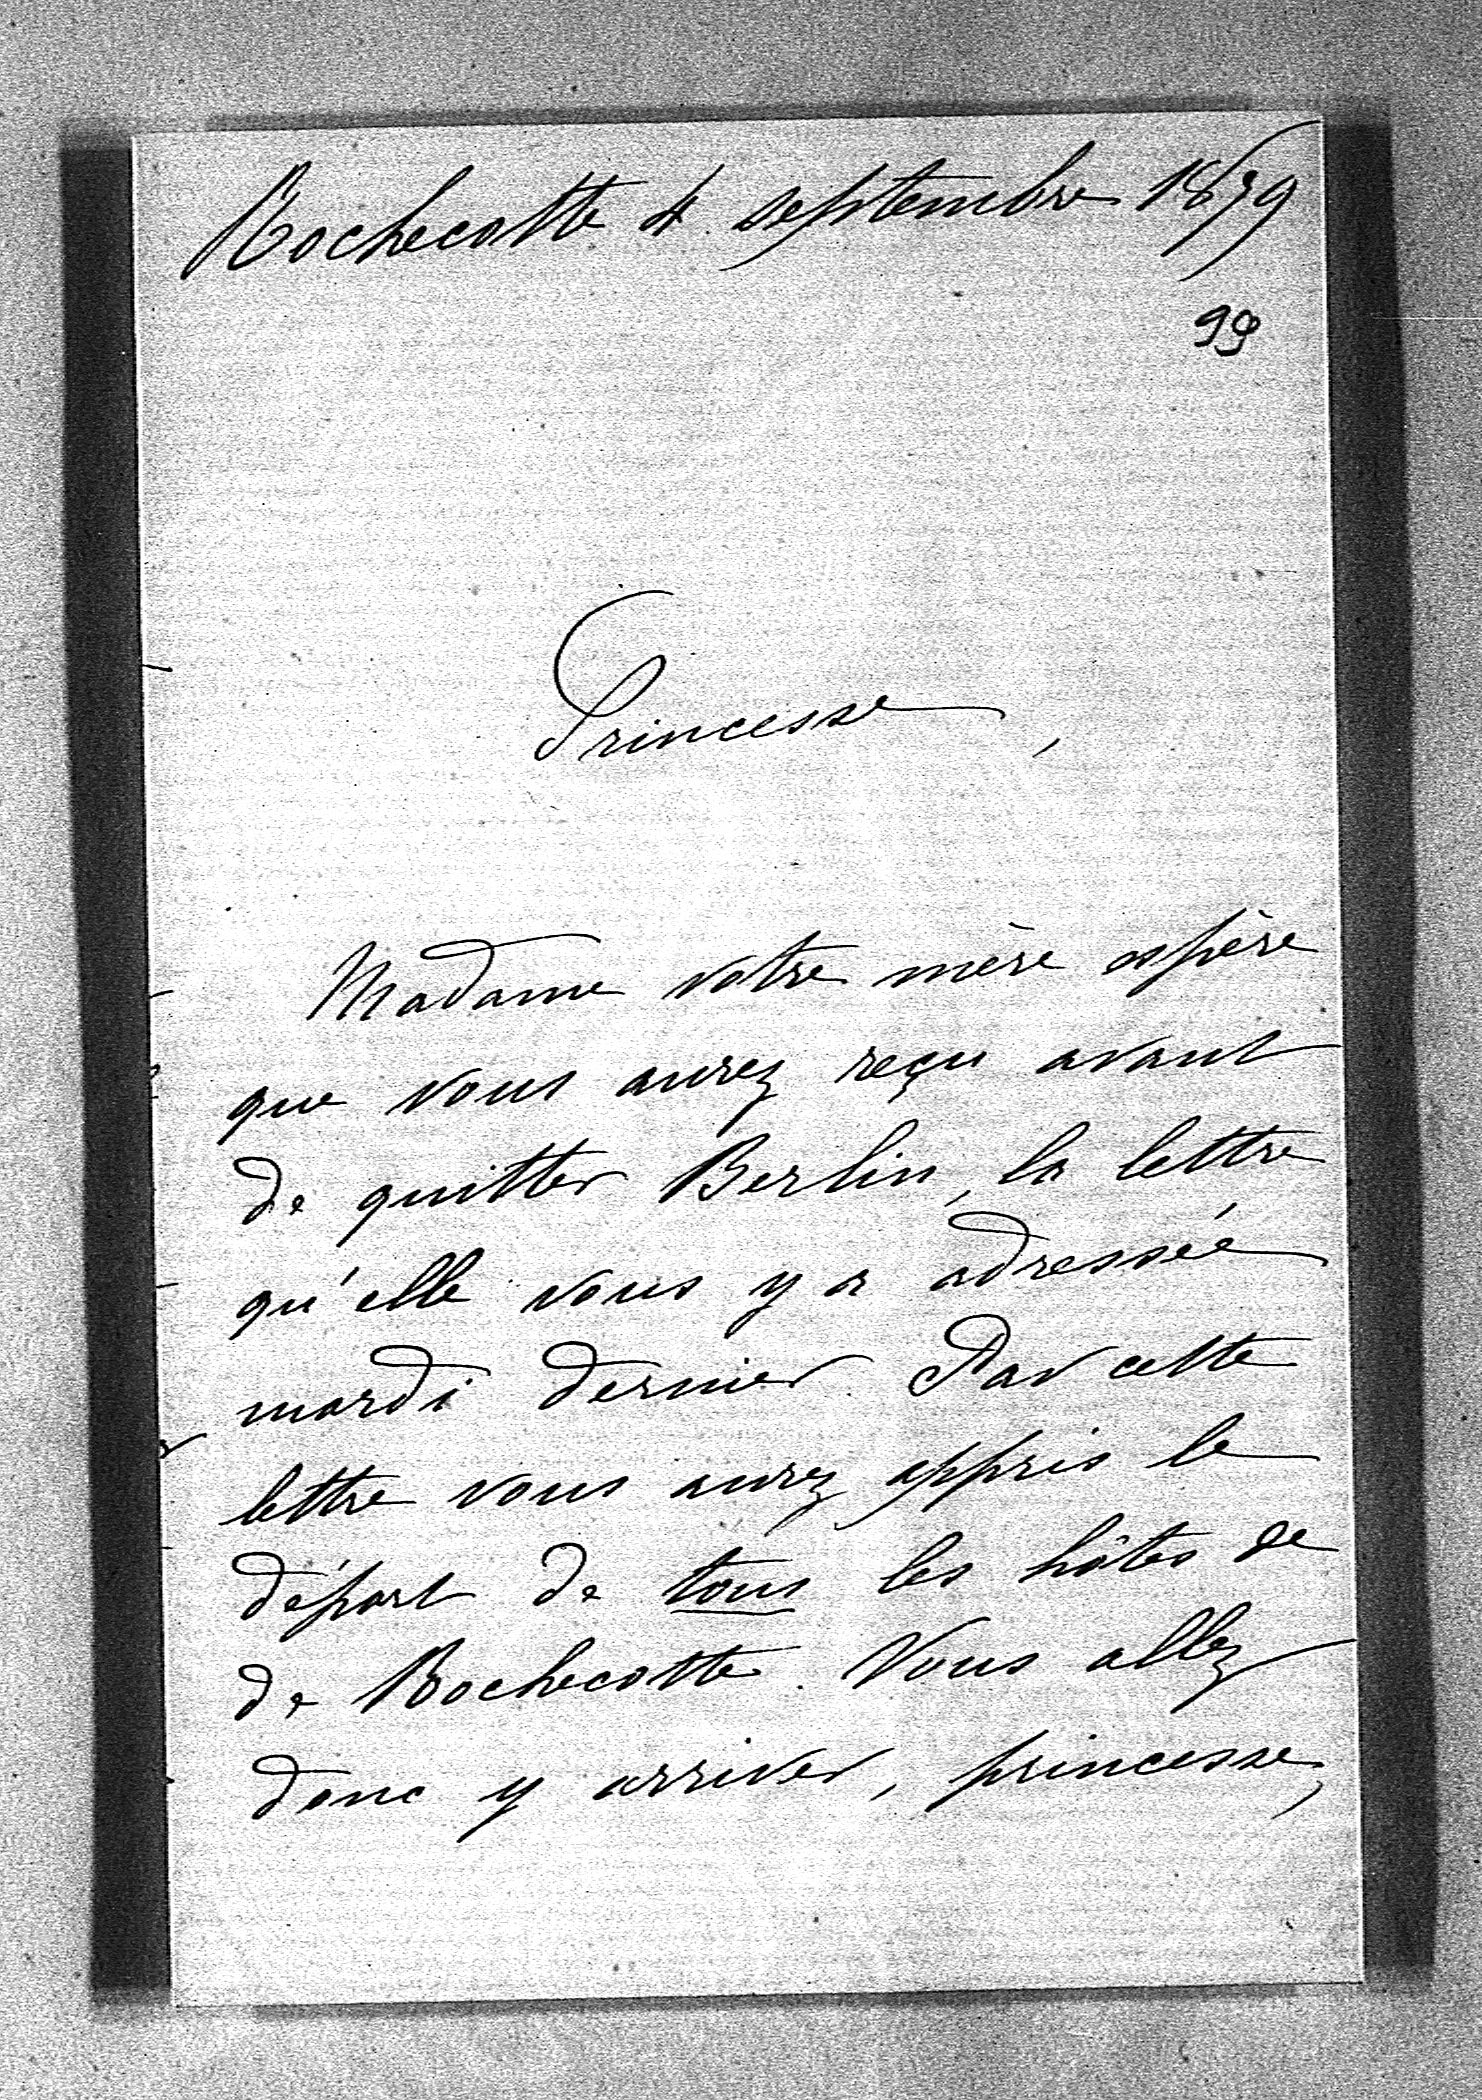 Rochecotte 4 septembre 1879
99
Princesse,
Madame votre mère espère
que vous aurez reçu avant
de quitter Berlin, la lettre
qu'elle vous y a adressée
mardi dernier. Par cette
lettre vous aurez appris le
départ de tous les hôtes de
de Rochecotte. Vous allez
donc y arriver, princesse,